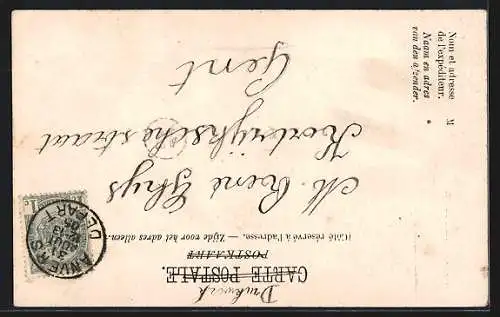 Drukwerk
CARTE POSTALE.
POSTKAART
(Côté réservé à l'adresse. — Zijde voor het adres alleen.)
M. René Ghys
Kortrijksche straat
Gent
Nom et adresse M
de l'expéditeur.
Naam en adres
van den afzender.
ANVERS
DEPART